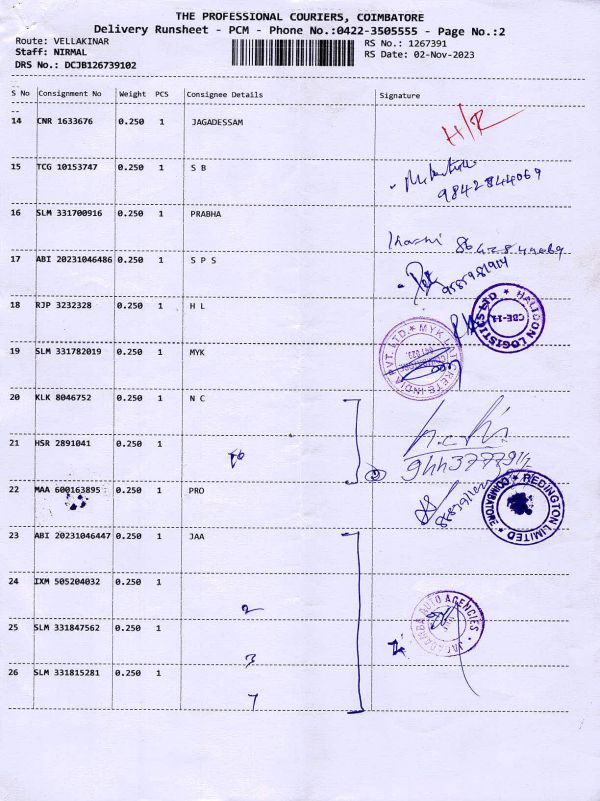 THE PROFESSIONAL COURIERS, COIMBATORE
Delivery Runsheet - PCM - Phone No.:0422-3505555 - Page No.:2
Route: VELLAKINAR RS No.: 1267391
Staff: NIRMAL RS Date: 02-Nov-2023
DRS No.: DCJB126739102
S No Consignment No Weight PCS Consignee Details Signature
14 CNR 1633676 0.250 1 JAGADESSAM H/R
15 TCG 10153747 0.250 1 S B
9842844069
16 SLM 331700916 0.250 1 PRABHA
17 ABI 20231046486 0.250 1 S P S
18 RJP 3232328 0.250 1 H L
HALICON LOGISTICS LTD CBE-11
19 SLM 331782019 0.250 1 MYK
MYK LATICRETE INDIA PVT. LTD.
20 KLK 8046752 0.250 1 N C
21 HSR 2891041 0.250 1
22 MAA 600163895 0.250 1 PRO
REDINGTON LIMITED COIMBATORE
23 ABI 20231046447 0.250 1 JAA
24 IXM 505204032 0.250 1
2
JAGADAMBA AUTO AGENCIES
25 SLM 331847562 0.250 1
3
26 SLM 331815281 0.250 1
7